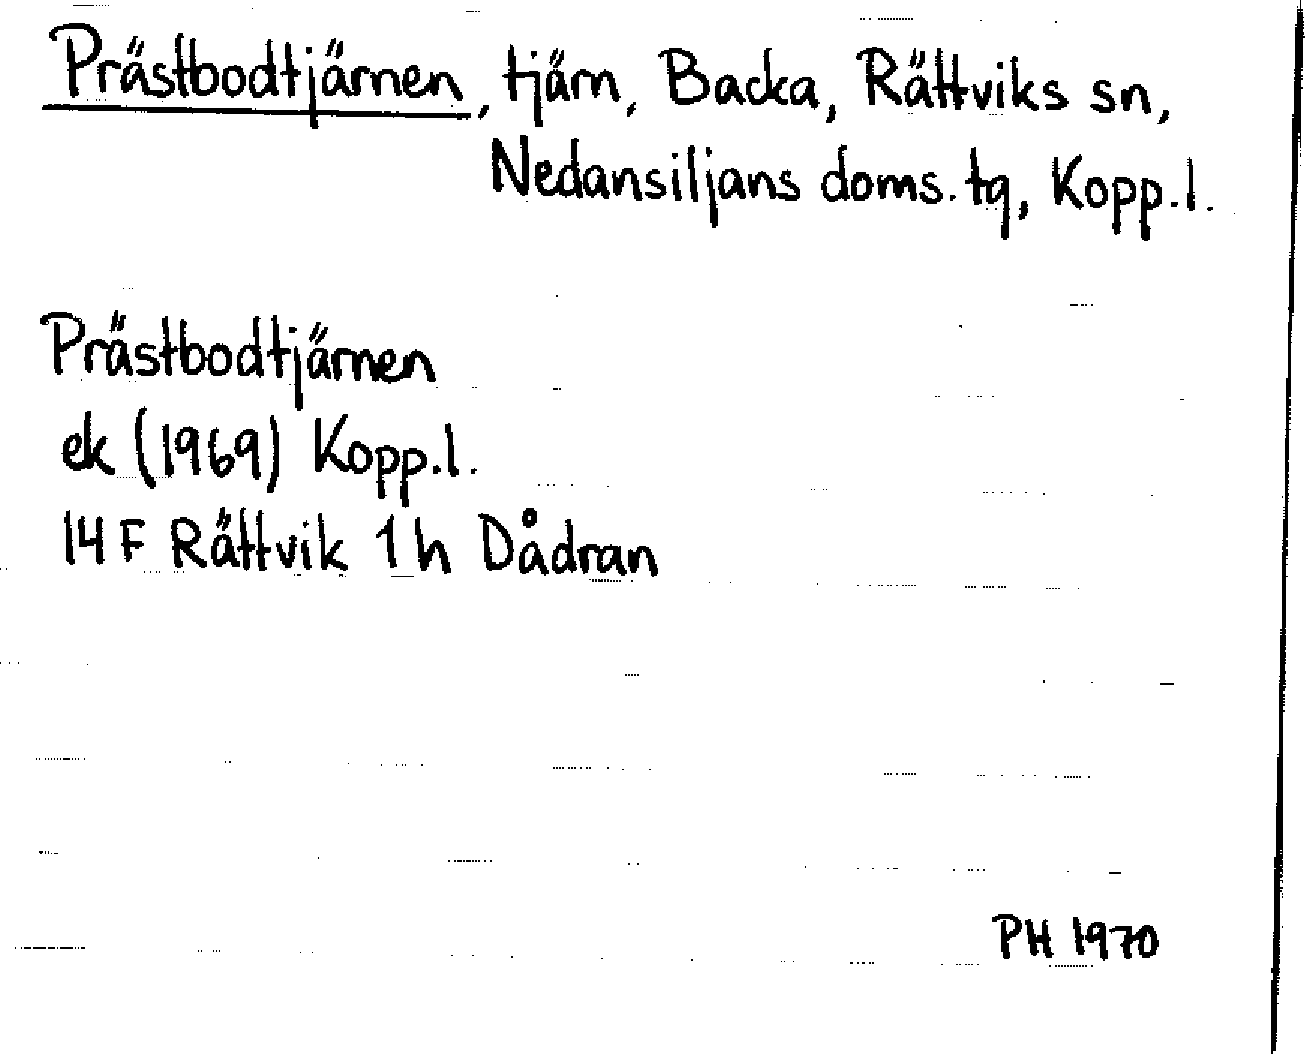 Prästbodtjärnen, tjärn, Backa, Rättviks sn,
Nedansiljans doms.tg, Kopp.l.
Prästbodtjärnen
ek (1969) Kopp.l.
14 F Rättvik 1 h Dådran
PH 1970